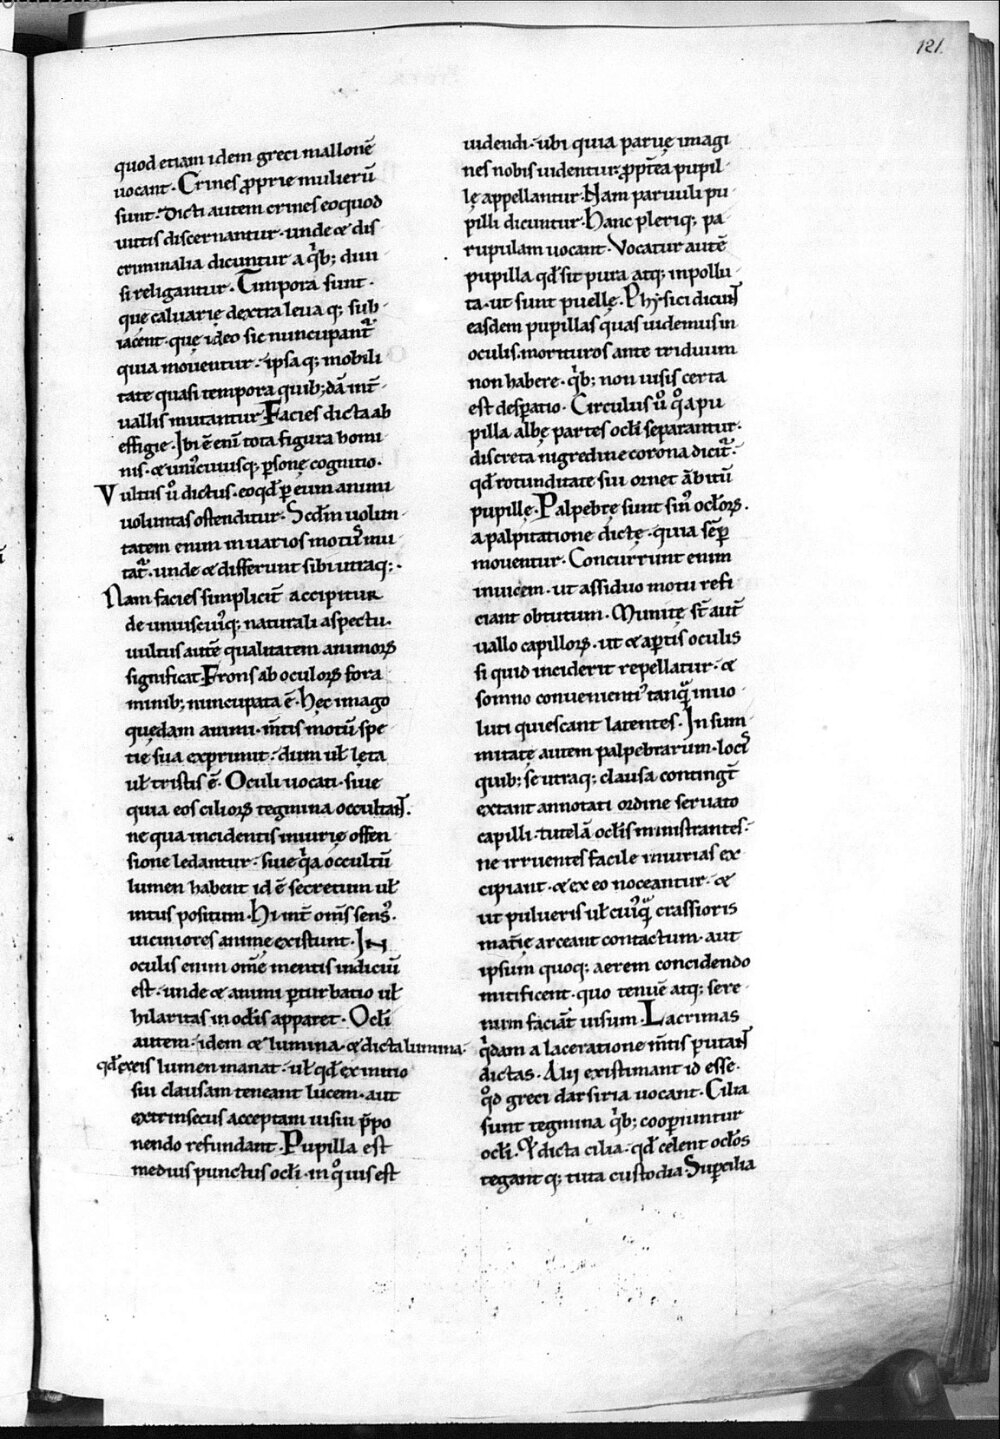 121.
quod etiam idem greci mallonē
uocant. Crines ꝓprie mulierū
sunt. Dicti autem crines eoquod
uittis discernantur. unde & dis
criminalia dicuntur a qͥb; diui
si religantur. Timpora sunt.
que caluarię dextra leua q; sub
iacent. quę ideo sic nuncupant᷑
quia mouentur. ipsa q; mobili
tate quasi tempora quib;dā int̄
uallis mutantur. Facies dicta ab
effigie. Ibi ē enī tota figura homi
nis. & uniͨcuiusq; ꝑsonę cognitio.
Vultus u̾o dictus. eo qd̄ ꝑ eum animi
uoluntas ostenditur. Scdm̄ uolun
tatem enim in uarios motus mu
tat᷑. unde & differunt sibi utraq;.
Nam facies simplicit̄ accipitur
de uniuscuiꝰq; naturali aspectu.
uultus autē qualitatem animoꝝ
significat. Frons ab oculoꝝ fora
minib; nuncupata ē. Hęc imago
quędam animi. m̄tis motū spe
tię sua exprimit. dum ul̄ lęta
ul̄ tristis ē. Oculi uocati. siue
quia eos cilioꝝ tegmina occultant.
ne qua incidentis iniurię offen
sione ledantur. siue qͥa occultū
lumen habent id ē secretum ul̄
intus positum. Hi int̄ om̄s sensꝰ.
uiciniores animę existunt. In
oculis enim om̄e mentis indiciū
est. unde & animi ꝑturbatio ul̄
hilaritas in ocl̄is apparet. Ocl̄i
autem. idem & lumina. & dicta lumina.
qd̄ ex eis lumen manat. ul̄ qd̄ ex initio
sui clausam teneant lucem. aut
extrinsecus acceptam uisui p̄po
nendo refundant. Pupilla est
medius punctus ocl̄i. in qͦ uis est
uidendi. ubi quia paruę imagi
nes nobis uidentur. ꝓpt̄ea pupil
lę appellantur. Nam paruuli pu
pilli dicuntur. Hanc pleriq; pu
rupulam uocant. Vocatur autē
pupilla qd̄ sit pura atq; inpollu
ta. ut sunt puellę. Phisici dicunt
easdem pupillas quas uidemus in
oculis. morituros ante triduum
non habere. qͥb; non uisis certa
est desꝑatio. Circulus u̾o qͦ a pu
pilla albę partes ocl̄i separantur.
discreta nigredine corona dicit᷑.
qd̄ rotunditate sui ornet ābitū
pupillę. Palpebrę sunt sinꝰ ocl̄oꝝ.
a palpitatione dictę. quia semꝑ
mouentur. Concurrunt enim
inuicem. ut assiduo motu refi
ciant obtutum. Munitę st̄ aut̄
uallo capilloꝝ. ut & aꝑtis oculis
si quid inciderit repellatur. &
somno conuenienti tanqͣ inuo
luti quiescant latentes. In sum
mitate autem palpebrarum. locis
quib; se utraq; clausa contingt̄
extant annotati ordine seruato
capilli. tutelā ocl̄is ministrantes.
ne irruentes facile iniurias ex
cipiant. & ex eo noceantur. &
ut pulueris ul̄ cuiꝰqͣ crassioris
mat̄ię arceant contactum. aut
ipsum quoq; aerem concidendo
mitificent. quo tenuē atq; sere
num faciāt uisum. Lacrimas
qͥdam a laceratione m̄tis putant
dictas. Alij existimant id esse.
qͦd greci darsiria uocant. Cilia
sunt tegmina qͥb; cooꝑiuntur
ocl̄i. & dicta cilia. qd̄ celent ocl̄os
tegant q; tuta custodia. Suꝑcilia